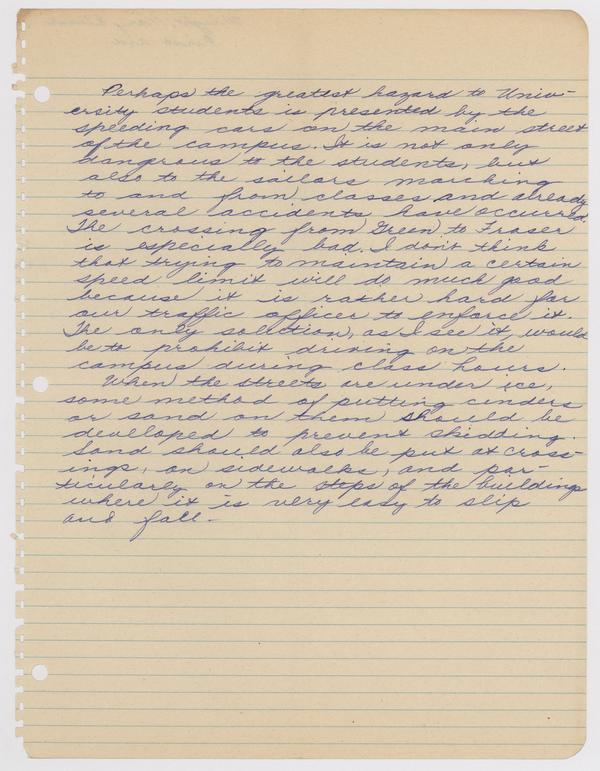 Perhaps the greatest hazard to Univ-
ersity students is presented by the
speeding cars on the main street
of the campus. It is not only
dangrous to the students, but
also to the sailors marching
to and from classes and already
several accidents have occurred.
The crossing from Green to Fraser
is especially bad. I don't think
that trying to maintain a certain
speed limit will do much good
because it is rather hard for
our traffic officer to enforce it.
The only solution, as I see it, would
be to prohibit driving on the
campus during class hours.
When the streets are under ice,
some method of putting cinders
or sand on them should be
developed to prevent skidding.
Sand should also be put at cross-
ings, on sidewalks, and par-
ticularly on the steps of the buildings
where it is very easy to slip
and fall.